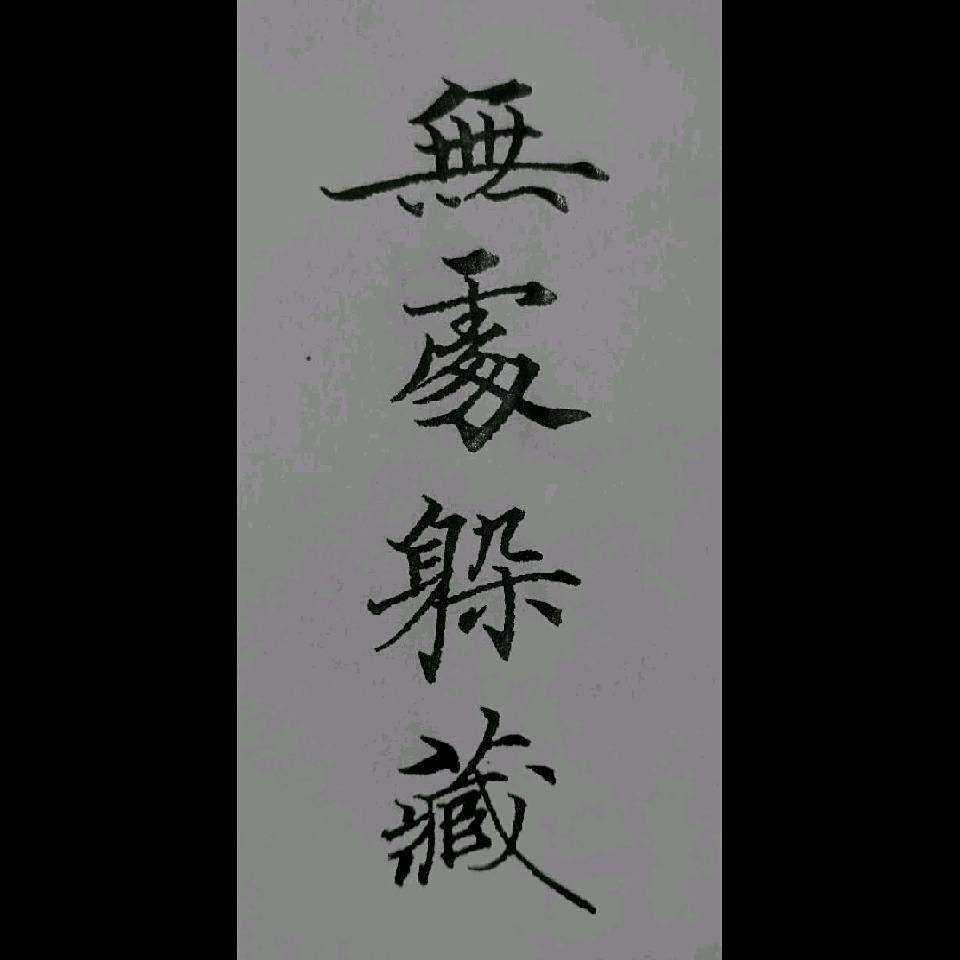 無處躲藏